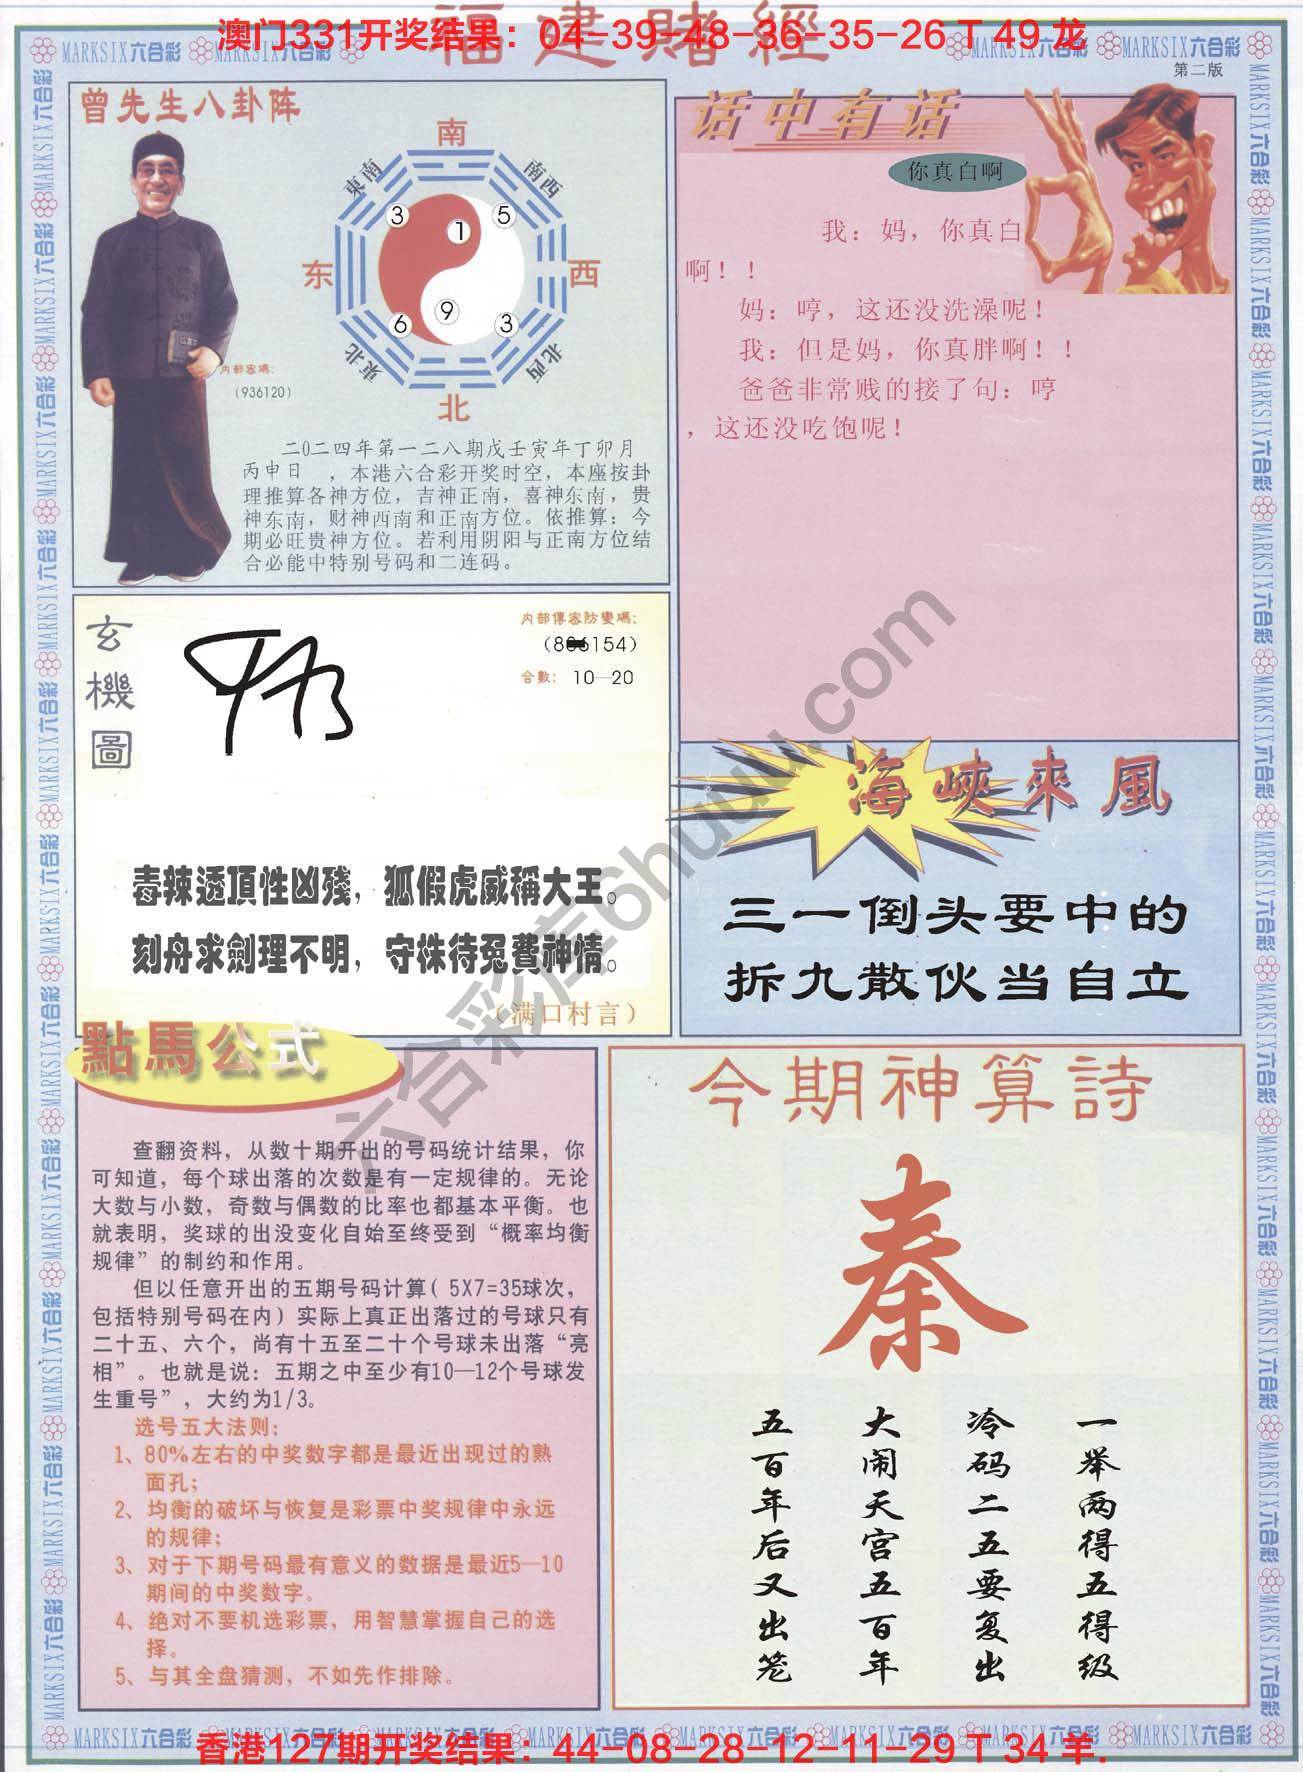 福建賭經
澳门331开奖结果：04-39-48-36-35-26 T 49 龙
MARKSIX六合彩
第二版
曾先生八卦阵
南
東南
南西
3
5
1
东
西
9
6
3
東北
北西
北
内部密碼：
(936120)
二0二四年第一二八期戊壬寅年丁卯月
丙申日，本港六合彩开奖时空，本座按卦
理推算各神方位，吉神正南，喜神东南，贵
神东南，财神西南和正南方位。依推算：今
期必旺贵神方位。若利用阴阳与正南方位结
合必能中特别号码和二连码。
话中有话
你真白啊
我：妈，你真白
啊！！
妈：哼，这还没洗澡呢！
我：但是妈，你真胖啊！！
爸爸非常贱的接了句：哼
，这还没吃饱呢！
玄機圖
内部傳密防變碼：
合數： 10—20
毒辣透頂性凶殘，狐假虎威稱大王。
刻舟求劍理不明，守株待兔費神情。
（满口村言）
海峽來風
三一倒头要中的
拆九散伙当自立
點馬公式
查翻资料，从数十期开出的号码统计结果，你
可知道，每个球出落的次数是有一定规律的。无论
大数与小数，奇数与偶数的比率也都基本平衡。也
就表明，奖球的出没变化自始至终受到“概率均衡
规律”的制约和作用。
但以任意开出的五期号码计算( 5X7=35球次，
包括特别号码在内）实际上真正出落过的号球只有
二十五、六个，尚有十五至二十个号球未出落“亮
相”。也就是说：五期之中至少有10—12个号球发
生重号”，大约为1/3。
选号五大法则：
1、80%左右的中奖数字都是最近出现过的熟
面孔；
2、均衡的破坏与恢复是彩票中奖规律中永远
的规律；
3、对于下期号码最有意义的数据是最近5—10
期间的中奖数字。
4、绝对不要机选彩票，用智慧掌握自己的选
择。
5、与其全盘猜测，不如先作排除。
今期神算詩
秦
一举两得五得级
冷码二五要复出
大闹天宫五百年
五百年后又出笼
六合彩库6huuu.com
香港127期开奖结果：44-08-28-12-11-29 T 34 羊.